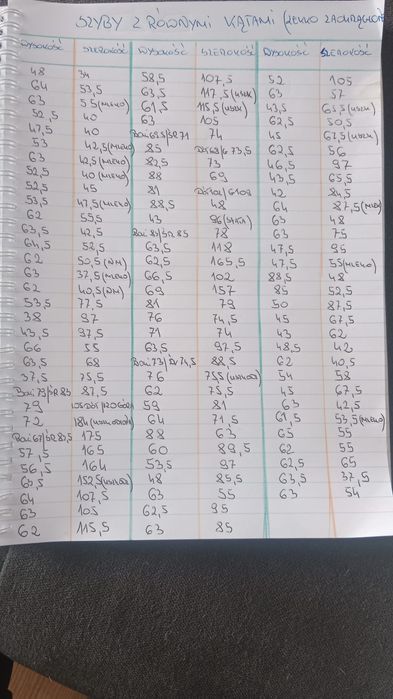 SZYBY Z RÓWNYMI KĄTAMI
WYSOKOŚĆ SZEROKOŚĆ WYSOKOŚĆ SZEROKOŚĆ WYSOKOŚĆ SZEROKOŚĆ
48 34 58,5 107,5 52 105
64 53,5 63,5 117,5 63 57
63 55 (MLEKO) 61,5 115,5 43,5 65,5
52,5 40 63 105 62,5 50,5
47,5 40 74 45 67,5
53 42,5 (MLEKO) 85 62,5 56
63 42,5 (MLEKO) 82,5 73 46,5 97
52,5 40 (MLEKO) 88 69 43,5 65,5
52,5 45 81 42 84,5
53,5 47,5 (MLEKO) 88,5 48 64 87,5
62 55,5 43 96 63 48
63,5 42,5 78 63 75
64,5 52,5 63,5 118 47,5 95
62 50,5 62,5 165,5 47,5 55 (MLEKO)
63 37,5 (MLEKO) 66,5 102 88,5 48
62 40,5 69 157 85 52,5
53,5 77,5 81 79 50 87,5
38 97 76 74,5 45 67,5
43,5 97,5 71 74 43 62
66 55 63,5 97,5 48,5 42
63,5 68 88,5 62 40,5
37,5 75,5 76 75,5 54 58
87,5 62 75,5 45 67,5
79 59 81 63 42,5
72 184 64 71,5 61,5 53,5 (MLEKO)
175 88 63 65 55
57,5 165 60 89,5 62 55
56,5 164 53,5 97 62,5 65
152,5 48 85,5 63,5 37,5
64 107,5 63 55 63 54
63 105 62,5 95
62 115,5 63 85